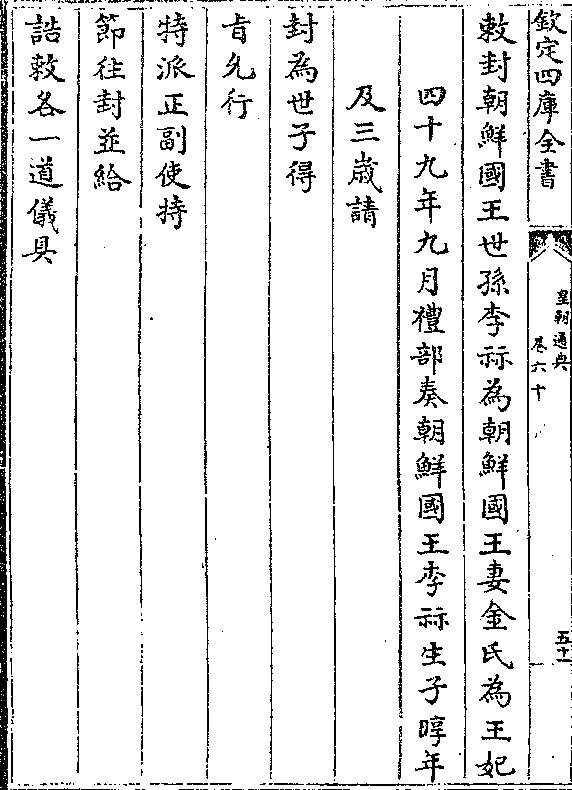 欽定四庫全書
皇朝通典
卷六十
五十一
敕封朝鮮國王世孫李祘為朝鮮國王妻金氏為王妃
四十九年九月禮部奏朝鮮國王李祘生子㬀年
及三歲請
封為世子得
旨允行
特派正副使持
節往封並給
誥敕各一道儀具